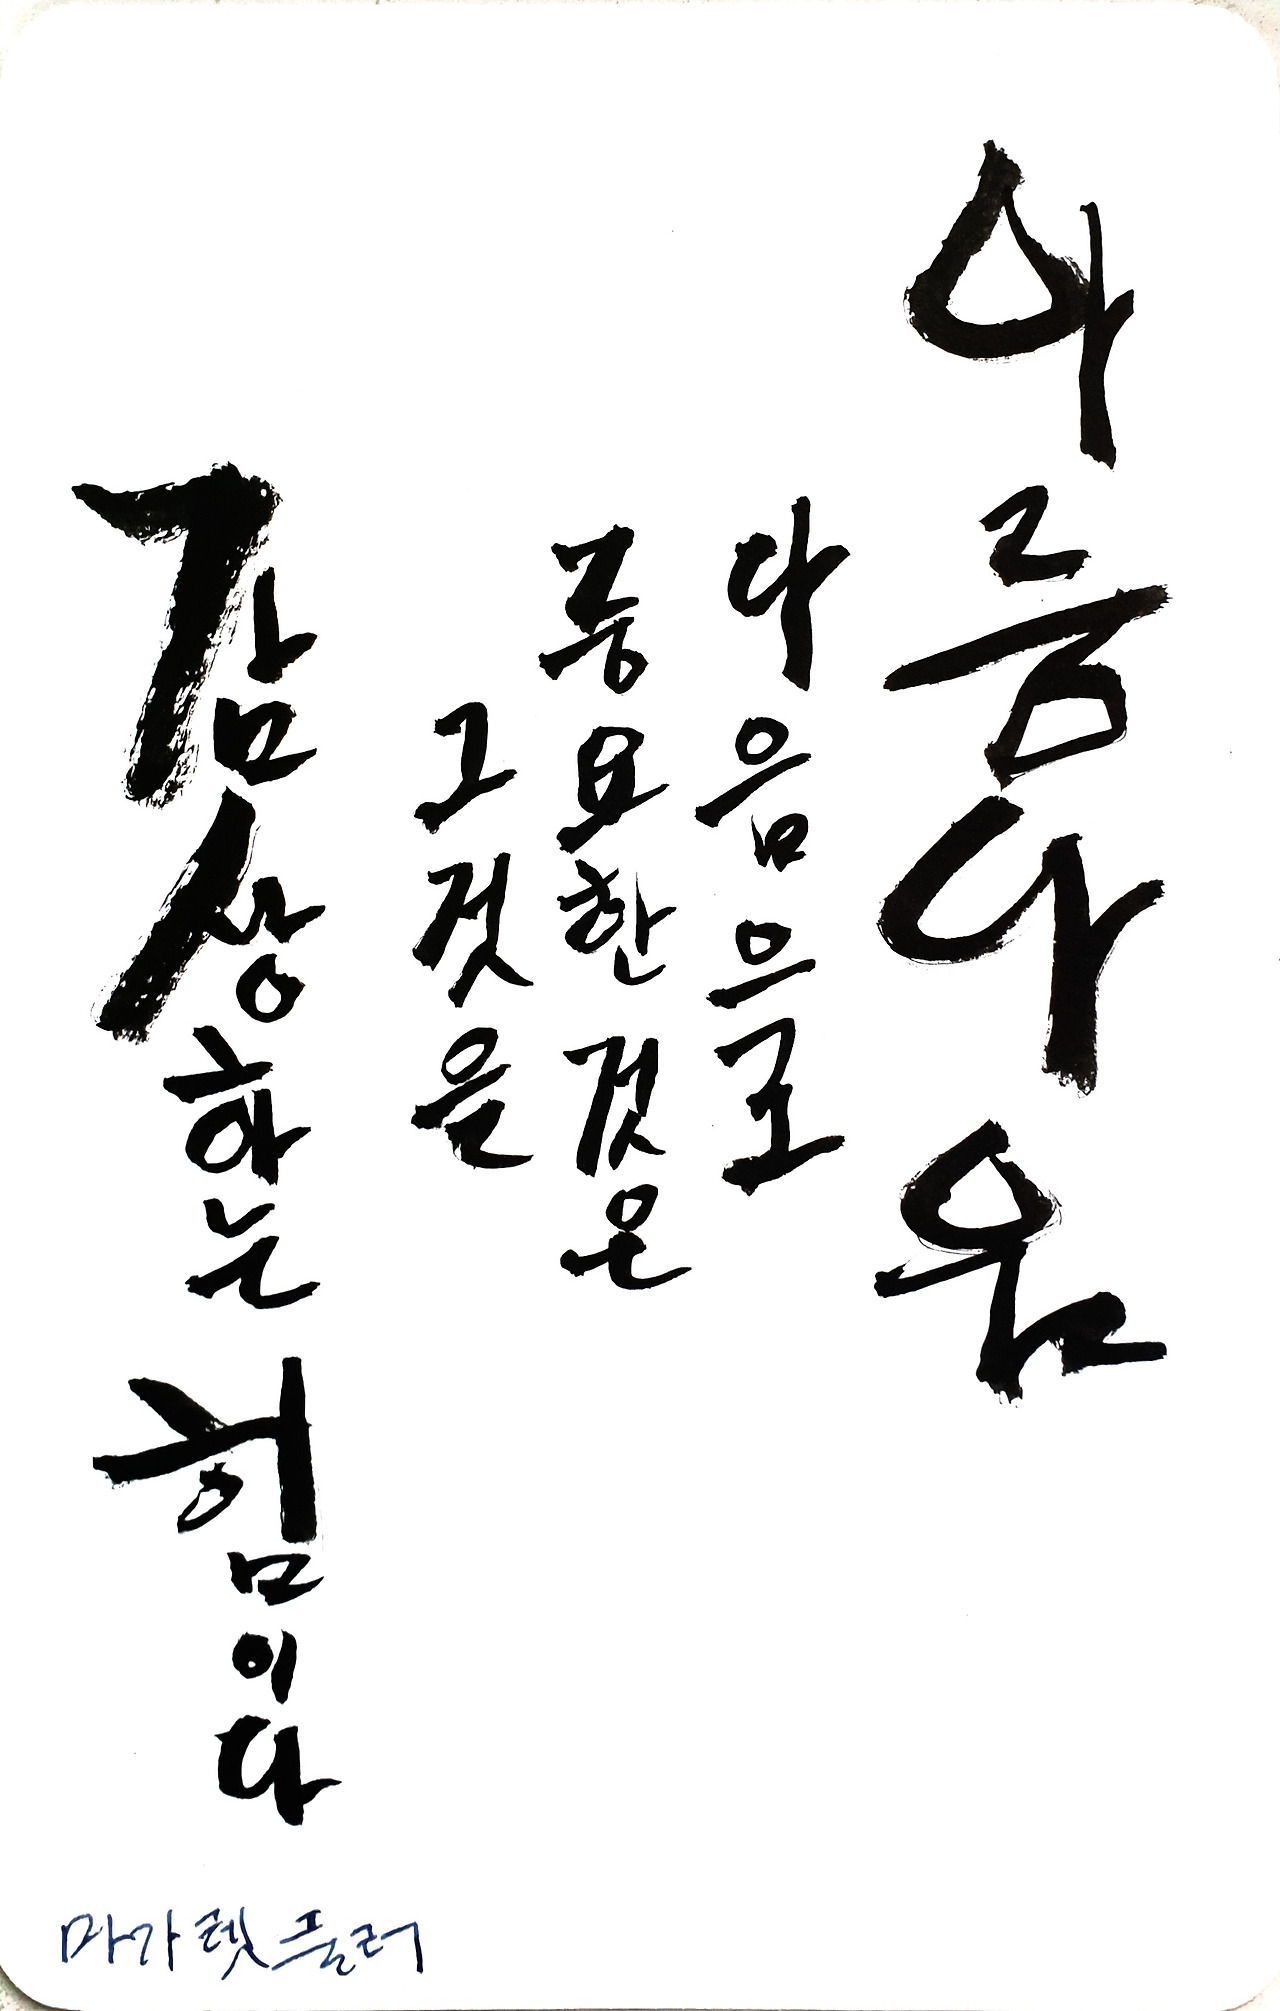 아름다움
다음으로
중요한 것은
그것을
감상하는 힘이다
마가렛 풀러